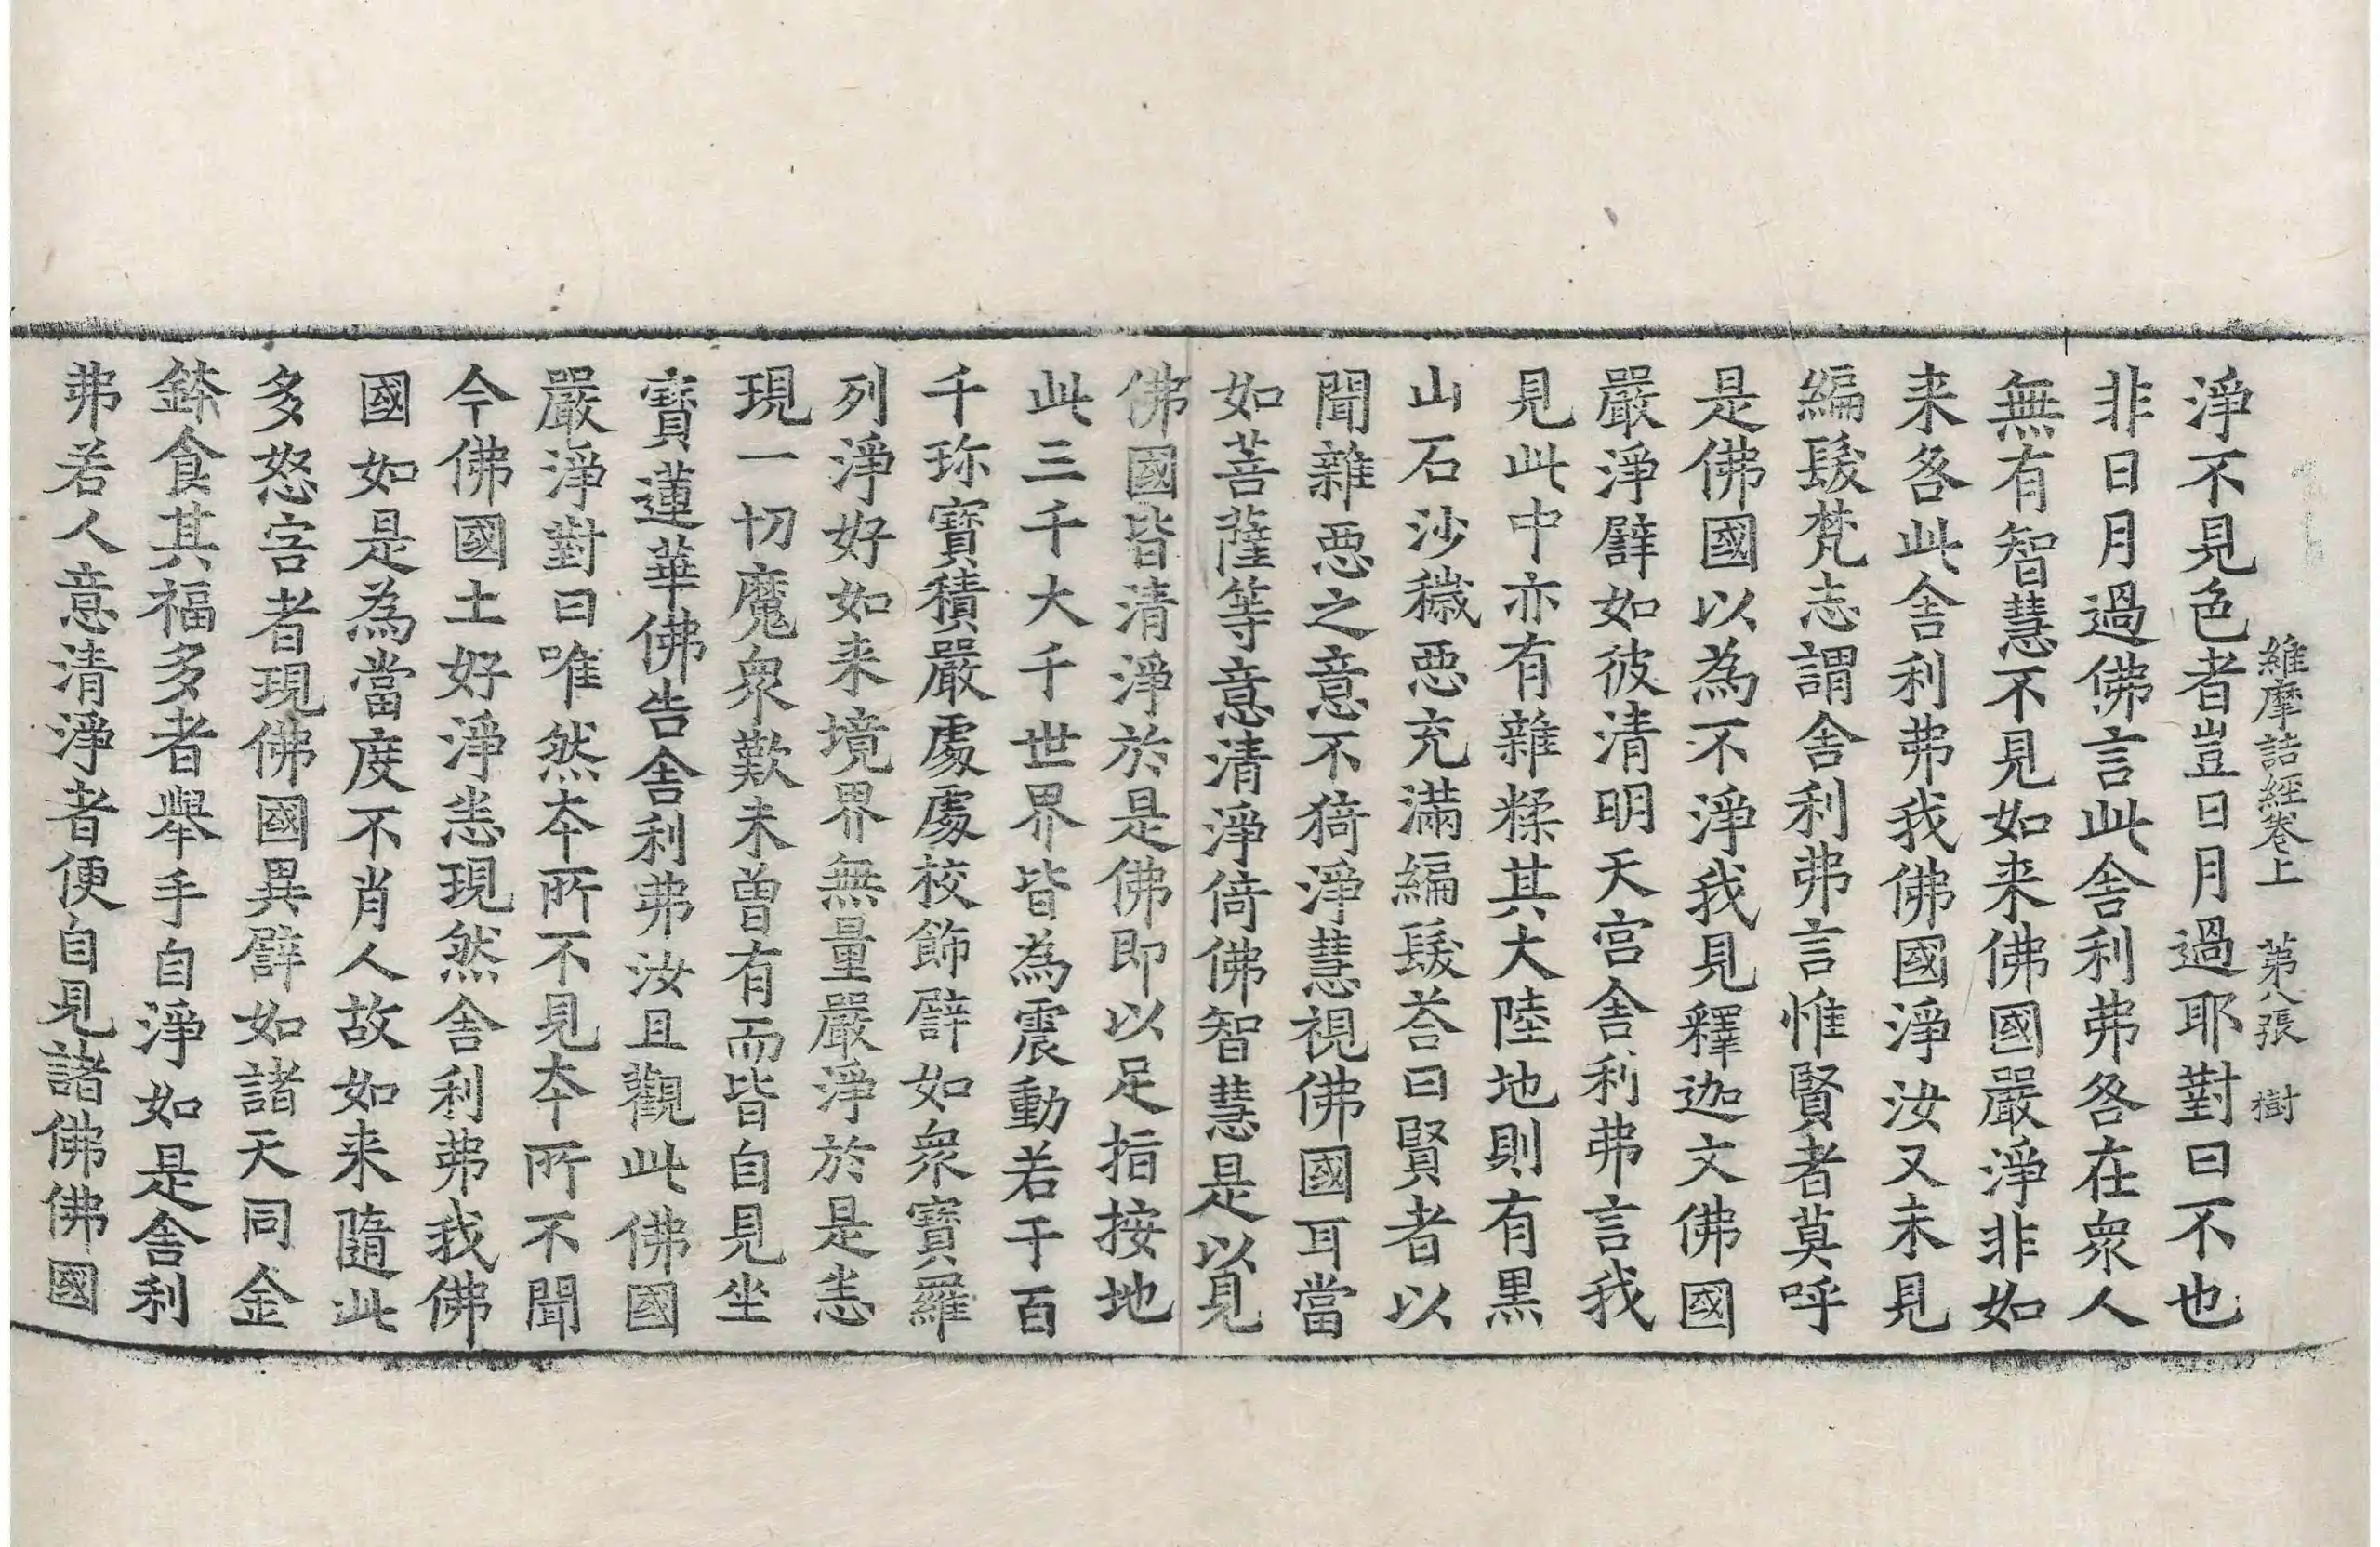 維摩詰經卷上　第八張　樹
淨不見色者豈日月過耶對曰不也
非日月過佛言此舍利弗各在衆人
無有智慧不見如来佛國嚴淨非如
来各此舍利弗我佛國淨汝又未見
編髮梵志謂舍利弗言惟賢者莫呼
是佛國以為不淨我見釋迦文佛國
嚴淨譬如彼清明天宮舍利弗言我
見此中亦有雜糅其大陸地則有黑
山石沙穢惡充滿編髮荅曰賢者以
聞雜惡之意不猗淨慧視佛國耳當
如菩薩等意清淨倚佛智慧是以見
佛國皆清淨於是佛即以足指按地
此三千大千世界皆為震動若干百
千珎寶積嚴處處校飾譬如衆寶羅
列淨好如来境界無量嚴淨於是悉
現一切魔衆歎未曾有而皆自見坐
寶蓮華佛告舍利弗汝且觀此佛國
嚴淨對曰唯然夲所不見夲所不聞
今佛國土好淨悉現然舍利弗我佛
國如是為當度不肖人故如来隨此
多怒害者現佛國異譬如諸天同金
鉢食其福多者舉手自淨如是舍利
弗若人意清淨者便自見諸佛佛國